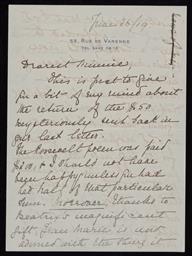 June 26/19
53, Rue de Varenne
Dearest Minnie,
This is just to give
you a bit of my mind about
the return of the $50
mysteriously sent back in
your last letter.
The Roosevelt poem was paid
& I should not have
been happy unless you had
had half of that particular
sum. Moreover, thanks to
Beatrix's magnificent
gift,
is now
with the
it